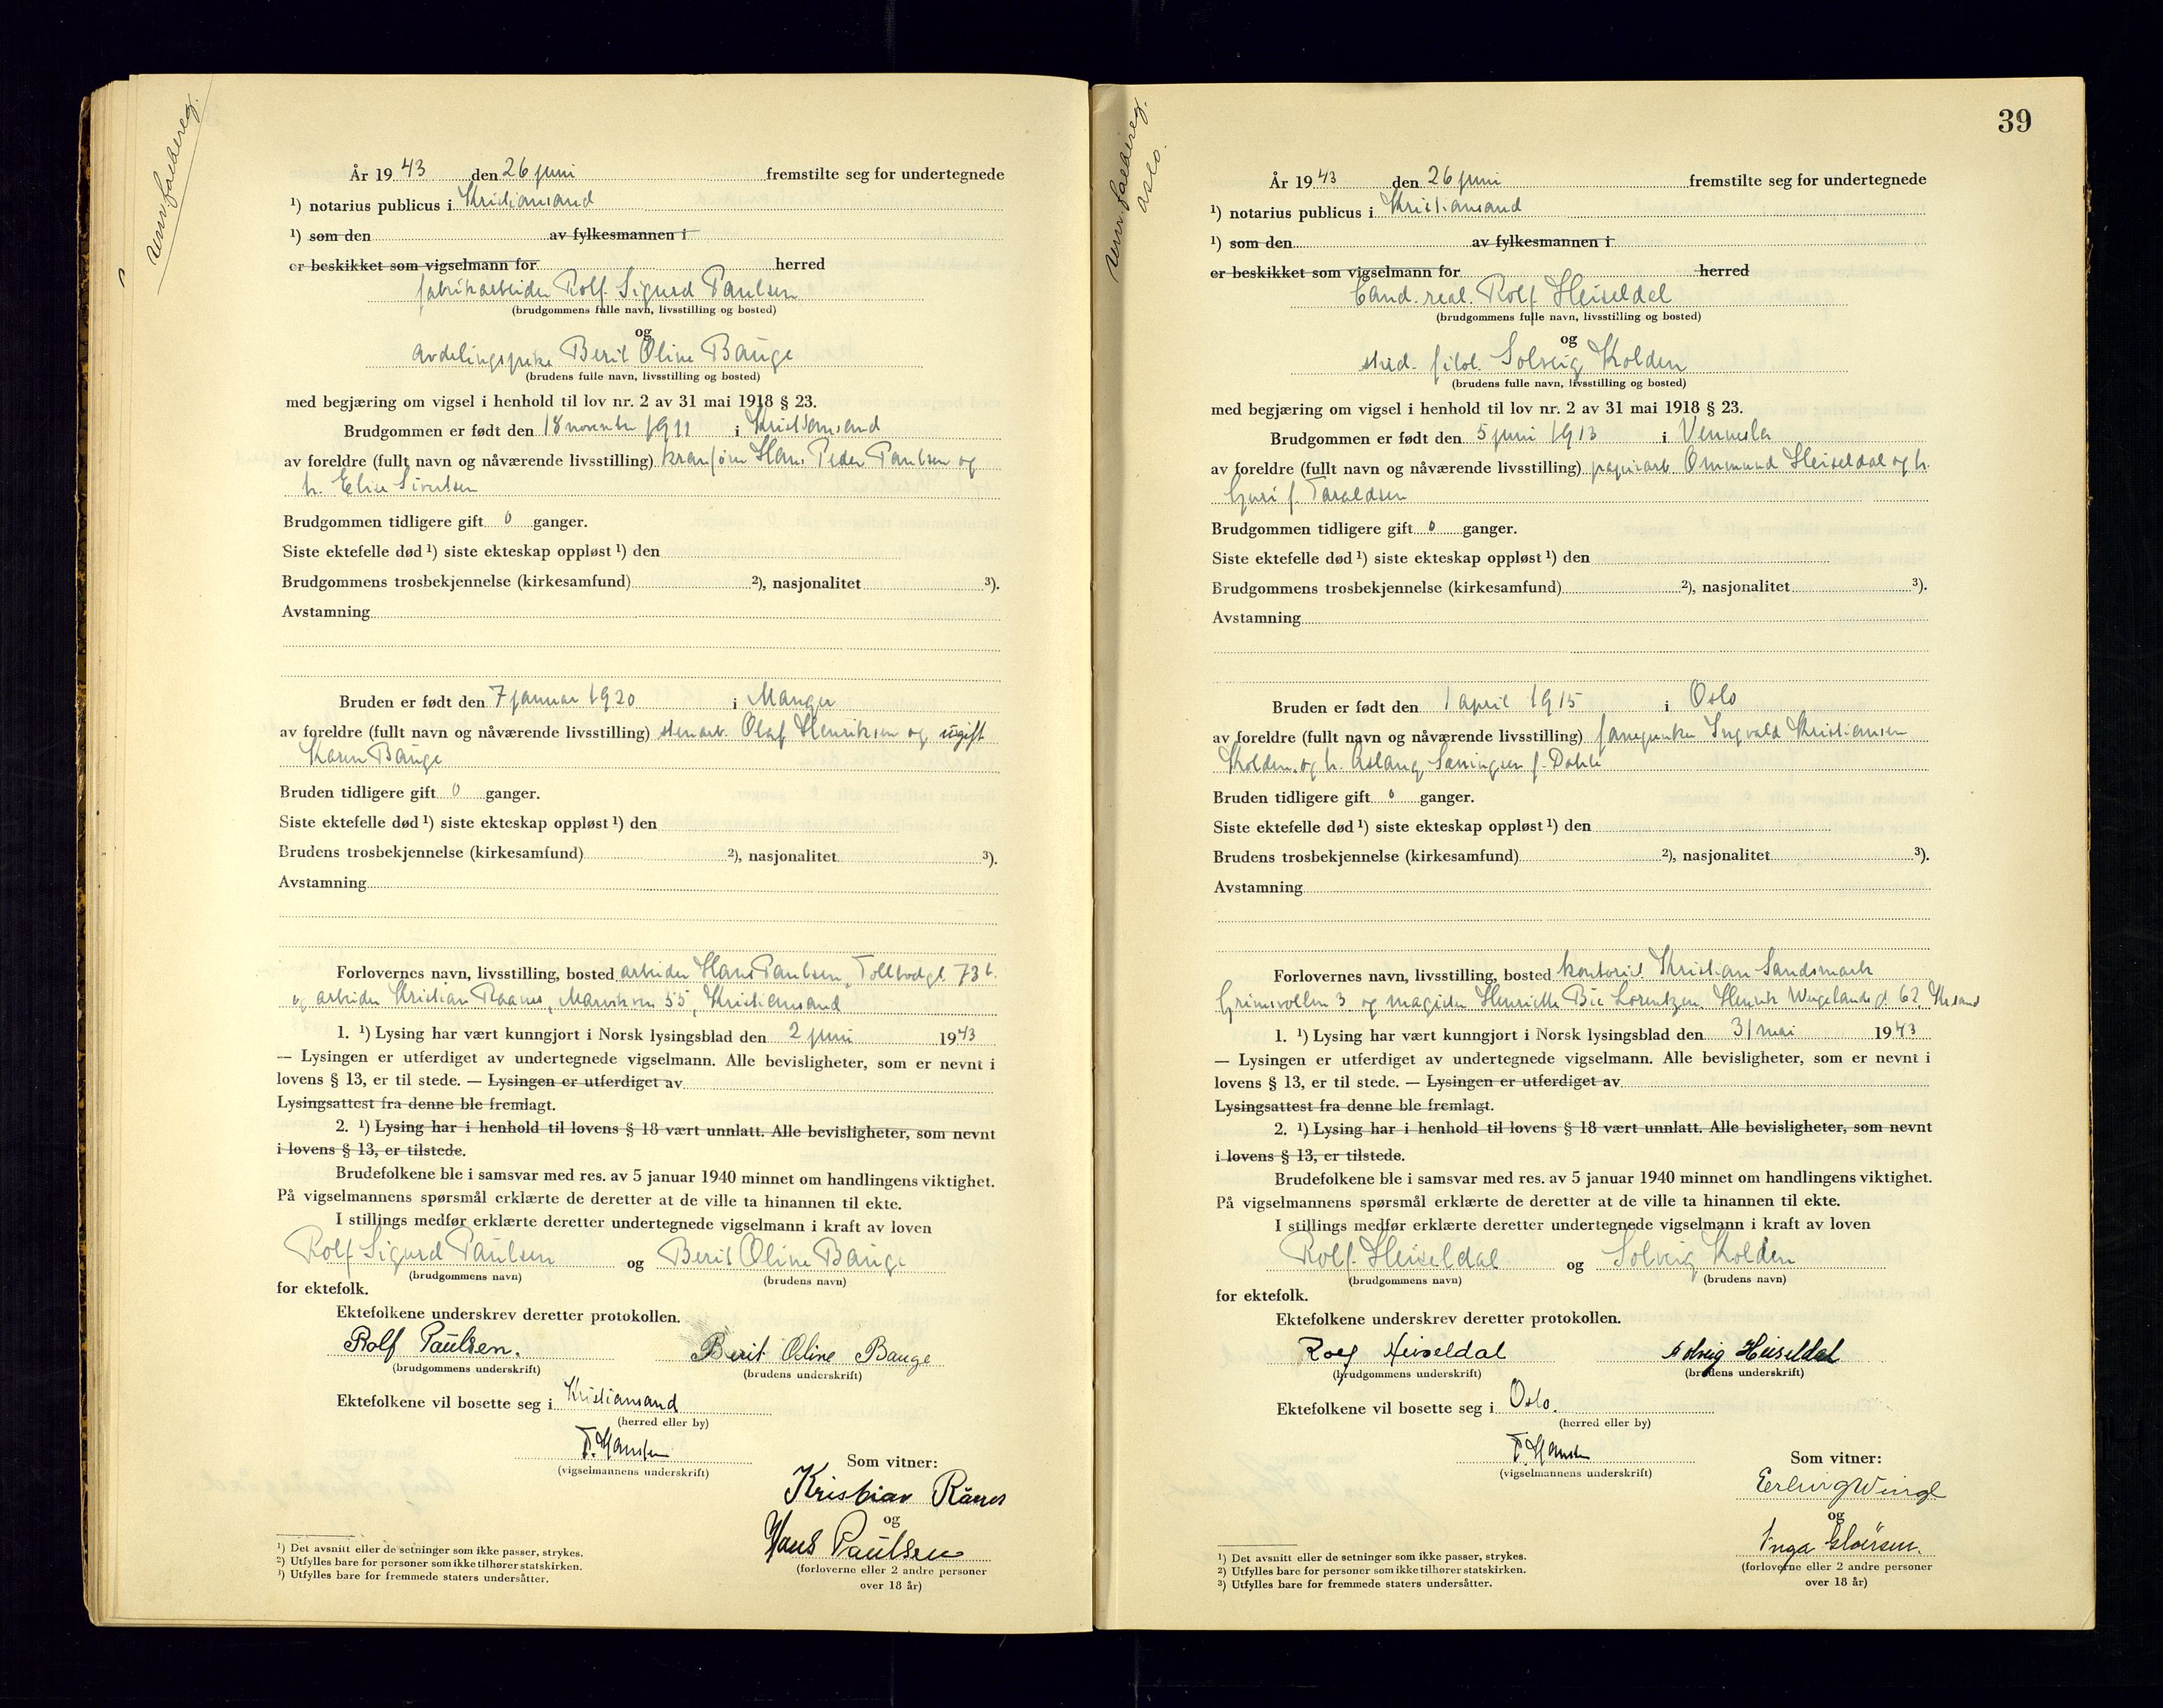 År 1943 den 26 juni fremstilte seg for undertegnede
¹) notarius publicus i Kristiansand
¹) som den av fylkesmannen i
er beskikket som vigselmann for herred
fabrikarbeider Rolf Sigurd Paulsen
(brudgommens fulle navn, livsstilling og bosted)
og
Berit Oline Bauge
(brudens fulle navn, livsstilling og bosted)
med begjæring om vigsel i henhold til lov nr. 2 av 31 mai 1918 § 23.
Brudgommen er født den 18 november 1911 i Kristiansand
av foreldre (fullt navn og nåværende livsstilling) Hans Peder Paulsen og
h. Elise Sivertsen
Brudgommen tidligere gift 0 ganger.
Siste ektefelle død ¹) siste ekteskap oppløst ¹) den
Brudgommens trosbekjennelse (kirkesamfund) ²), nasjonalitet ³).
Avstamning
Bruden er født den 7 januar 1920 i Manger
av foreldre (fullt navn og nåværende livsstilling) stenarb. Olaf Henriksen og ugift
Karen Bauge
Bruden tidligere gift 0 ganger.
Siste ektefelle død ¹) siste ekteskap oppløst ¹) den
Brudens trosbekjennelse (kirkesamfund) ²), nasjonalitet ³).
Avstamning
Forlovernes navn, livsstilling, bosted arbeider Hans Paulsen, Tollbodgt 73 b.
og arbeider Kristian Raanes, Marvikvn 55, Kristiansand
1. ¹) Lysing har vært kunngjort i Norsk lysingsblad den 2 juni 1943
— Lysingen er utferdiget av undertegnede vigselmann. Alle bevisligheter, som er nevnt i
lovens § 13, er til stede. — Lysingen er utferdiget av
Lysingsattest fra denne ble fremlagt.
2. ¹) Lysing har i henhold til lovens § 18 vært unnlatt. Alle bevisligheter, som nevnt
i lovens § 13, er tilstede.
Brudefolkene ble i samsvar med res. av 5 januar 1940 minnet om handlingens viktighet.
På vigselmannens spørsmål erklærte de deretter at de ville ta hinannen til ekte.
I stillings medfør erklærte deretter undertegnede vigselmann i kraft av loven
Rolf Sigurd Paulsen og Berit Oline Bauge
(brudgommens navn) (brudens navn)
for ektefolk.
Ektefolkene underskrev deretter protokollen.
Rolf Paulsen. Berit Oline Bauge
(brudgommens underskrift) (brudens underskrift)
Ektefolkene vil bosette seg i Kristiansand
(herred eller by)
T. Hansen
(vigselmannens underskrift)
Som vitner:
Kristian Rånes
og
Hans Paulsen
(forloverne eller 2 andre personer
over 18 år)
¹) Det avsnitt eller de setninger som ikke passer, strykes.
²) Utfylles bare for personer som ikke tilhører statskirken.
³) Utfylles bare for fremmede staters undersåtter.
39
Oslo.
År 1943 den 26 juni fremstilte seg for undertegnede
¹) notarius publicus i Kristiansand
¹) som den av fylkesmannen i
er beskikket som vigselmann for herred
Cand. real. Rolf Heiseldal
(brudgommens fulle navn, livsstilling og bosted)
og
stud. filol. Solveig Kolden
(brudens fulle navn, livsstilling og bosted)
med begjæring om vigsel i henhold til lov nr. 2 av 31 mai 1918 § 23.
Brudgommen er født den 5 juni 1913 i Vennesla
av foreldre (fullt navn og nåværende livsstilling) papirarb. Ommund Heiseldal og h.
Guri f. Taraldsen
Brudgommen tidligere gift 0 ganger.
Siste ektefelle død ¹) siste ekteskap oppløst ¹) den
Brudgommens trosbekjennelse (kirkesamfund) ²), nasjonalitet ³).
Avstamning
Bruden er født den 1 april 1915 i Oslo
av foreldre (fullt navn og nåværende livsstilling) Ingvald Kristiansen
Kolden og h. Aslaug f. Dahle
Bruden tidligere gift 0 ganger.
Siste ektefelle død ¹) siste ekteskap oppløst ¹) den
Brudens trosbekjennelse (kirkesamfund) ²), nasjonalitet ³).
Avstamning
Forlovernes navn, livsstilling, bosted kontorist Kristian Sandsmark
Grimsvollen 3 og magister Henriette Bie Lorentzen, Henrik Wergelands gt. 62, Krsand
1. ¹) Lysing har vært kunngjort i Norsk lysingsblad den 31 mai 1943
— Lysingen er utferdiget av undertegnede vigselmann. Alle bevisligheter, som er nevnt i
lovens § 13, er til stede. — Lysingen er utferdiget av
Lysingsattest fra denne ble fremlagt.
2. ¹) Lysing har i henhold til lovens § 18 vært unnlatt. Alle bevisligheter, som nevnt
i lovens § 13, er tilstede.
Brudefolkene ble i samsvar med res. av 5 januar 1940 minnet om handlingens viktighet.
På vigselmannens spørsmål erklærte de deretter at de ville ta hinannen til ekte.
I stillings medfør erklærte deretter undertegnede vigselmann i kraft av loven
Rolf Heiseldal og Solveig Kolden
(brudgommens navn) (brudens navn)
for ektefolk.
Ektefolkene underskrev deretter protokollen.
Rolf Heiseldal Solveig Heiseldal
(brudgommens underskrift) (brudens underskrift)
Ektefolkene vil bosette seg i Oslo.
(herred eller by)
T. Hansen
(vigselmannens underskrift)
Som vitner:
Erling
og
Inga
(forloverne eller 2 andre personer
over 18 år)
¹) Det avsnitt eller de setninger som ikke passer, strykes.
²) Utfylles bare for personer som ikke tilhører statskirken.
³) Utfylles bare for fremmede staters undersåtter.